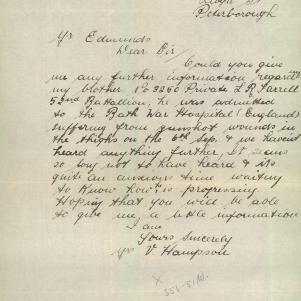 St
Peterborough
Mr Edmunds
Dear Sir
Could you give
me any further information regarding
my brother No 3260 Private L R Farrell
52nd Battallion, he was admitted
to the Bath War Hospital (England)
suffering from gunshot wounds in
the thighs on the 6th Sep. & we havent
heard anything further, it seems
so long not to have heard & its
quite an anxious time waiting
to know how is progressing
Hoping that you will be able
to give me, a little information
I am
Yours Sincerely
V Hampson